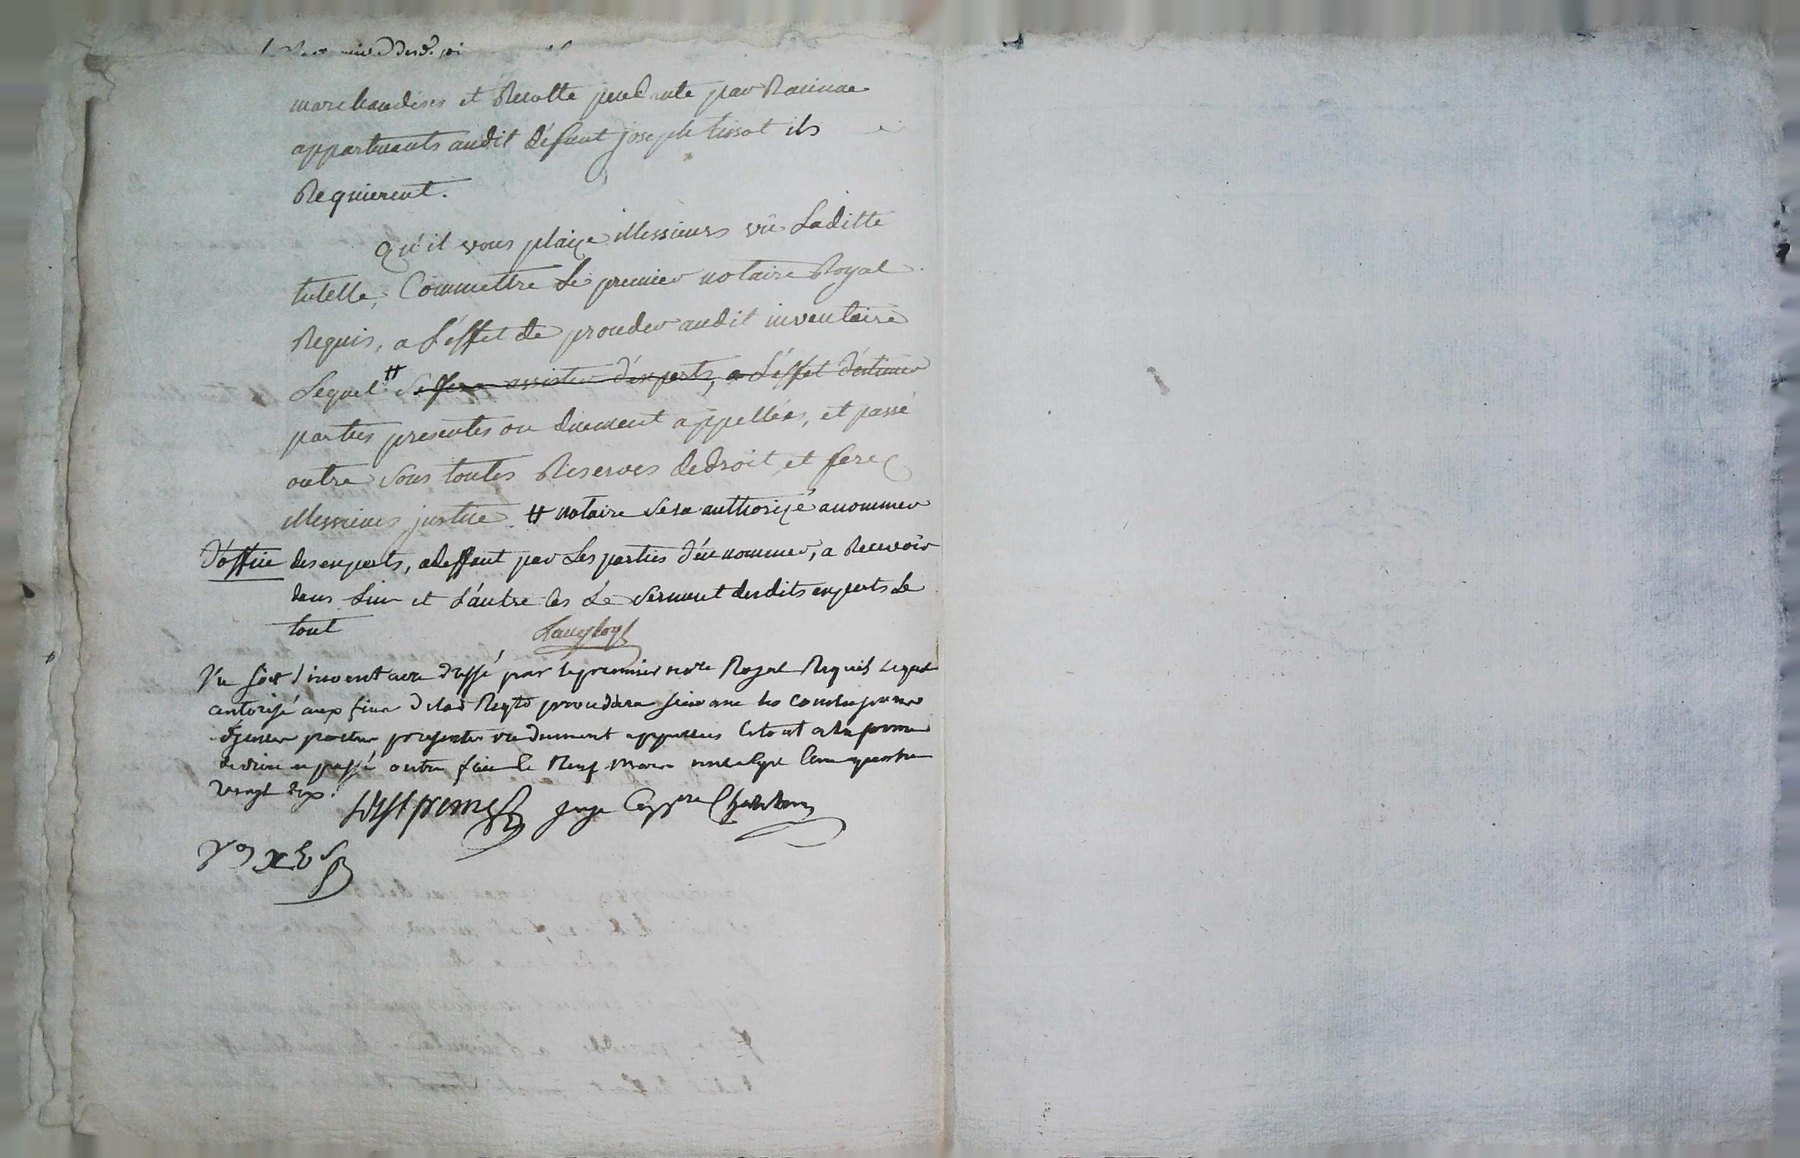 marchandises et Recolte pendante par Racinne
appartenants audit défunt joseph tissot ils
Requierent.
Qu'il vous plaize Messieurs vû Laditte
tutelle, Commettre Le premier notaire Royal
Requis, a L'éffet de proceder audit inventaire
Lequel # Se fera assister d'experts, a L'éffet d'estimer
parties presentes ou duement appellées, et passé
outre Sous toutes Reserves de droit et ferez
Messieurs justice. # notaire Sera authorizé a nommer
d'office des experts, adeffaut par Les parties d'en nommer, a Recevoir
dans L'un et L'autre cas Le Serment desdits experts Le
tout
Vu soit inventaire dressé par le premier nore Royal Requis Lequel
autorisé aux fins de lad Reqte procedera
parties presentes ou dument appellées le tout a la forme
de droit et passé outre fait le Neuf mars mil sept cent quatre
vingt dix.
juge